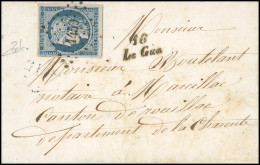 Monsieur
16
Le Gua
Monsieur Boutolant
notaire à Marcillac
Canton de rouillac
département de la Charente